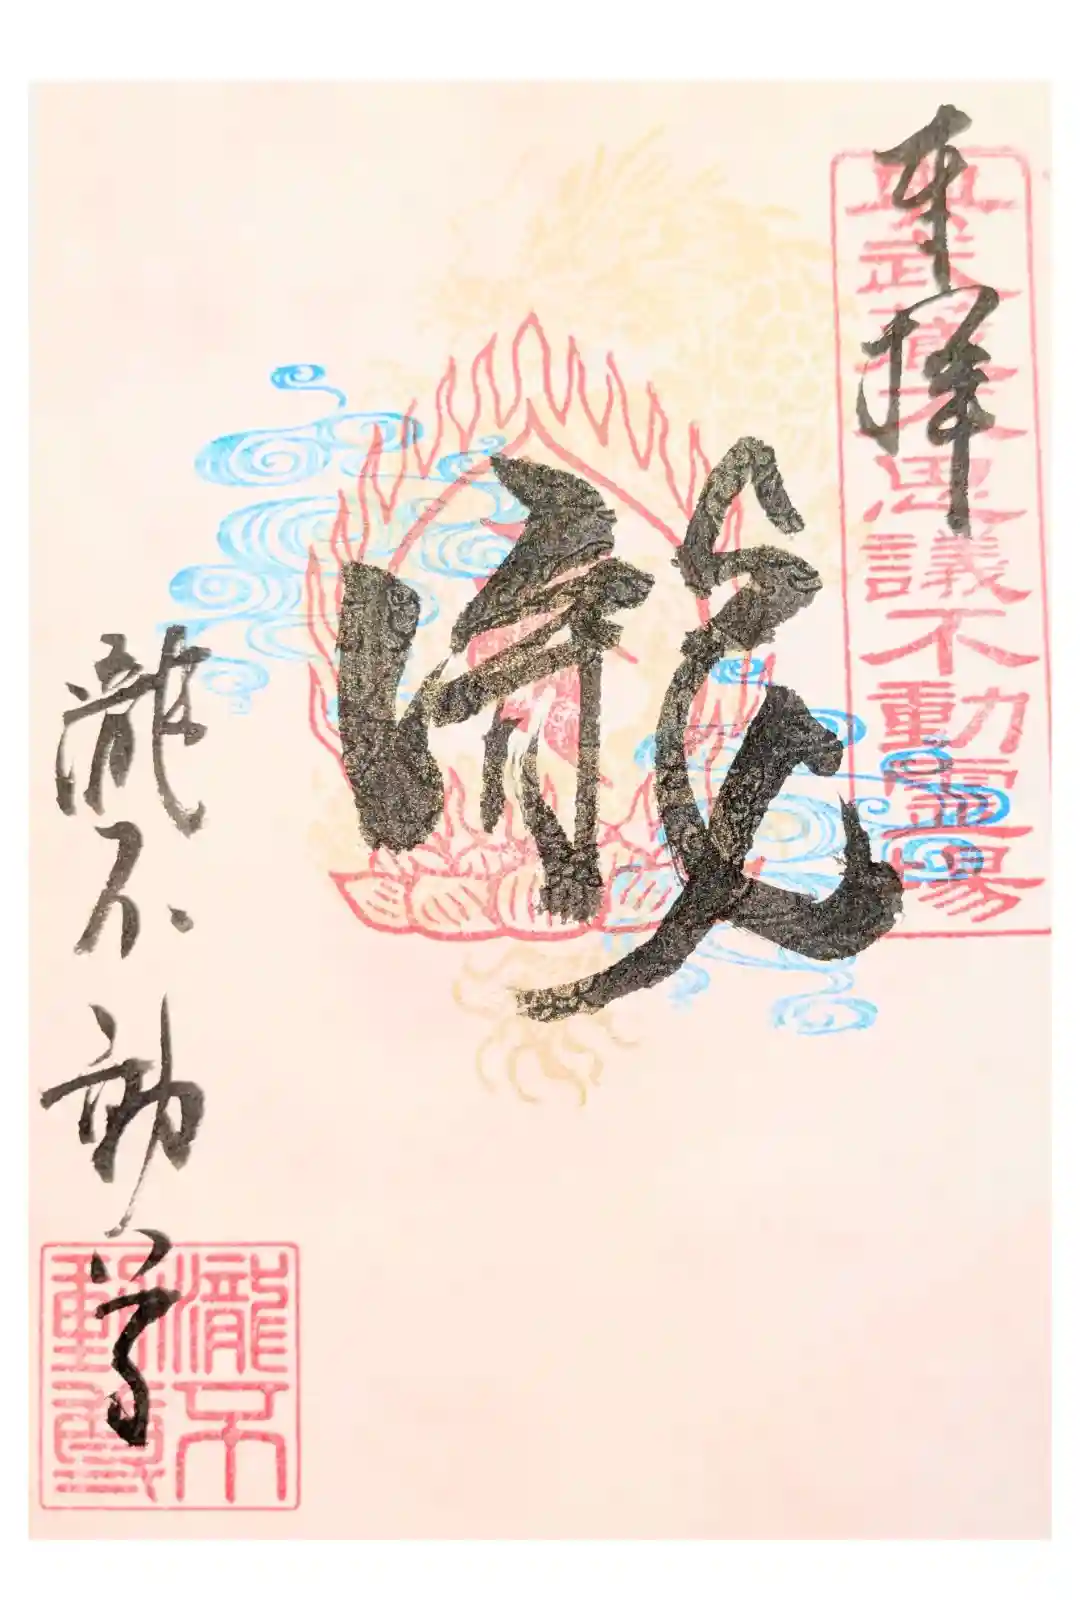 奉拝
奥武蔵不思議不動霊場
瀧
瀧不動尊
瀧不動尊